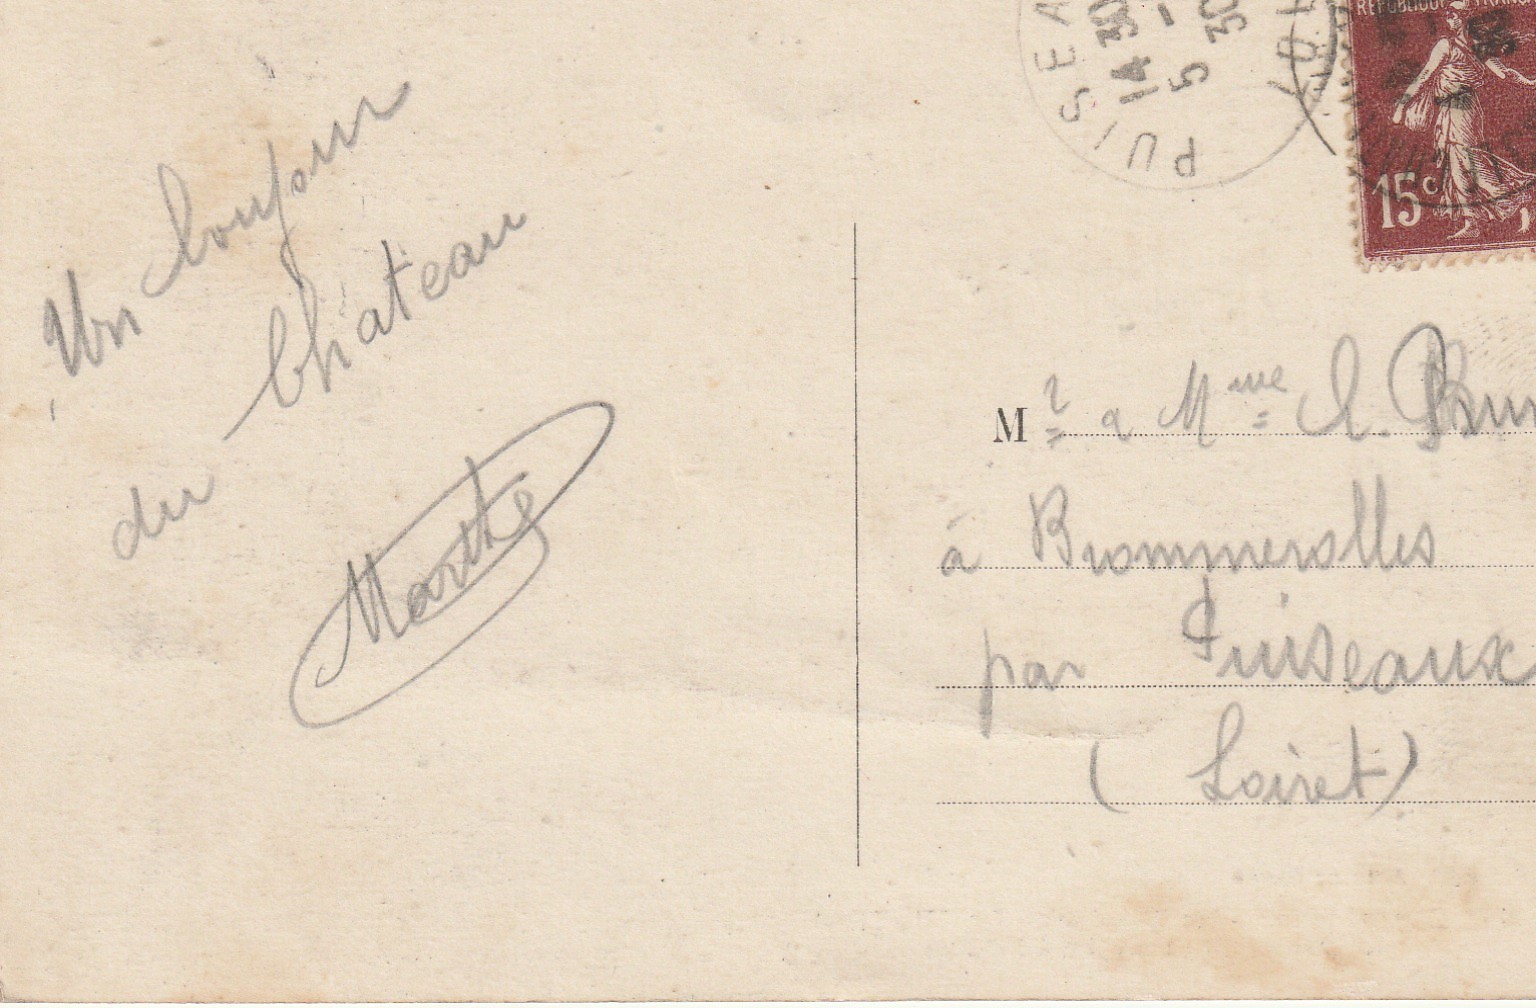 Un bonjour
du Château
Marthe
PUISEA
14 30
5 - 30
RÉPUBLIQUE FRANÇ
15c
M r & Mme A. Brun
à Brommerolles
par Puiseaux
(Loiret)